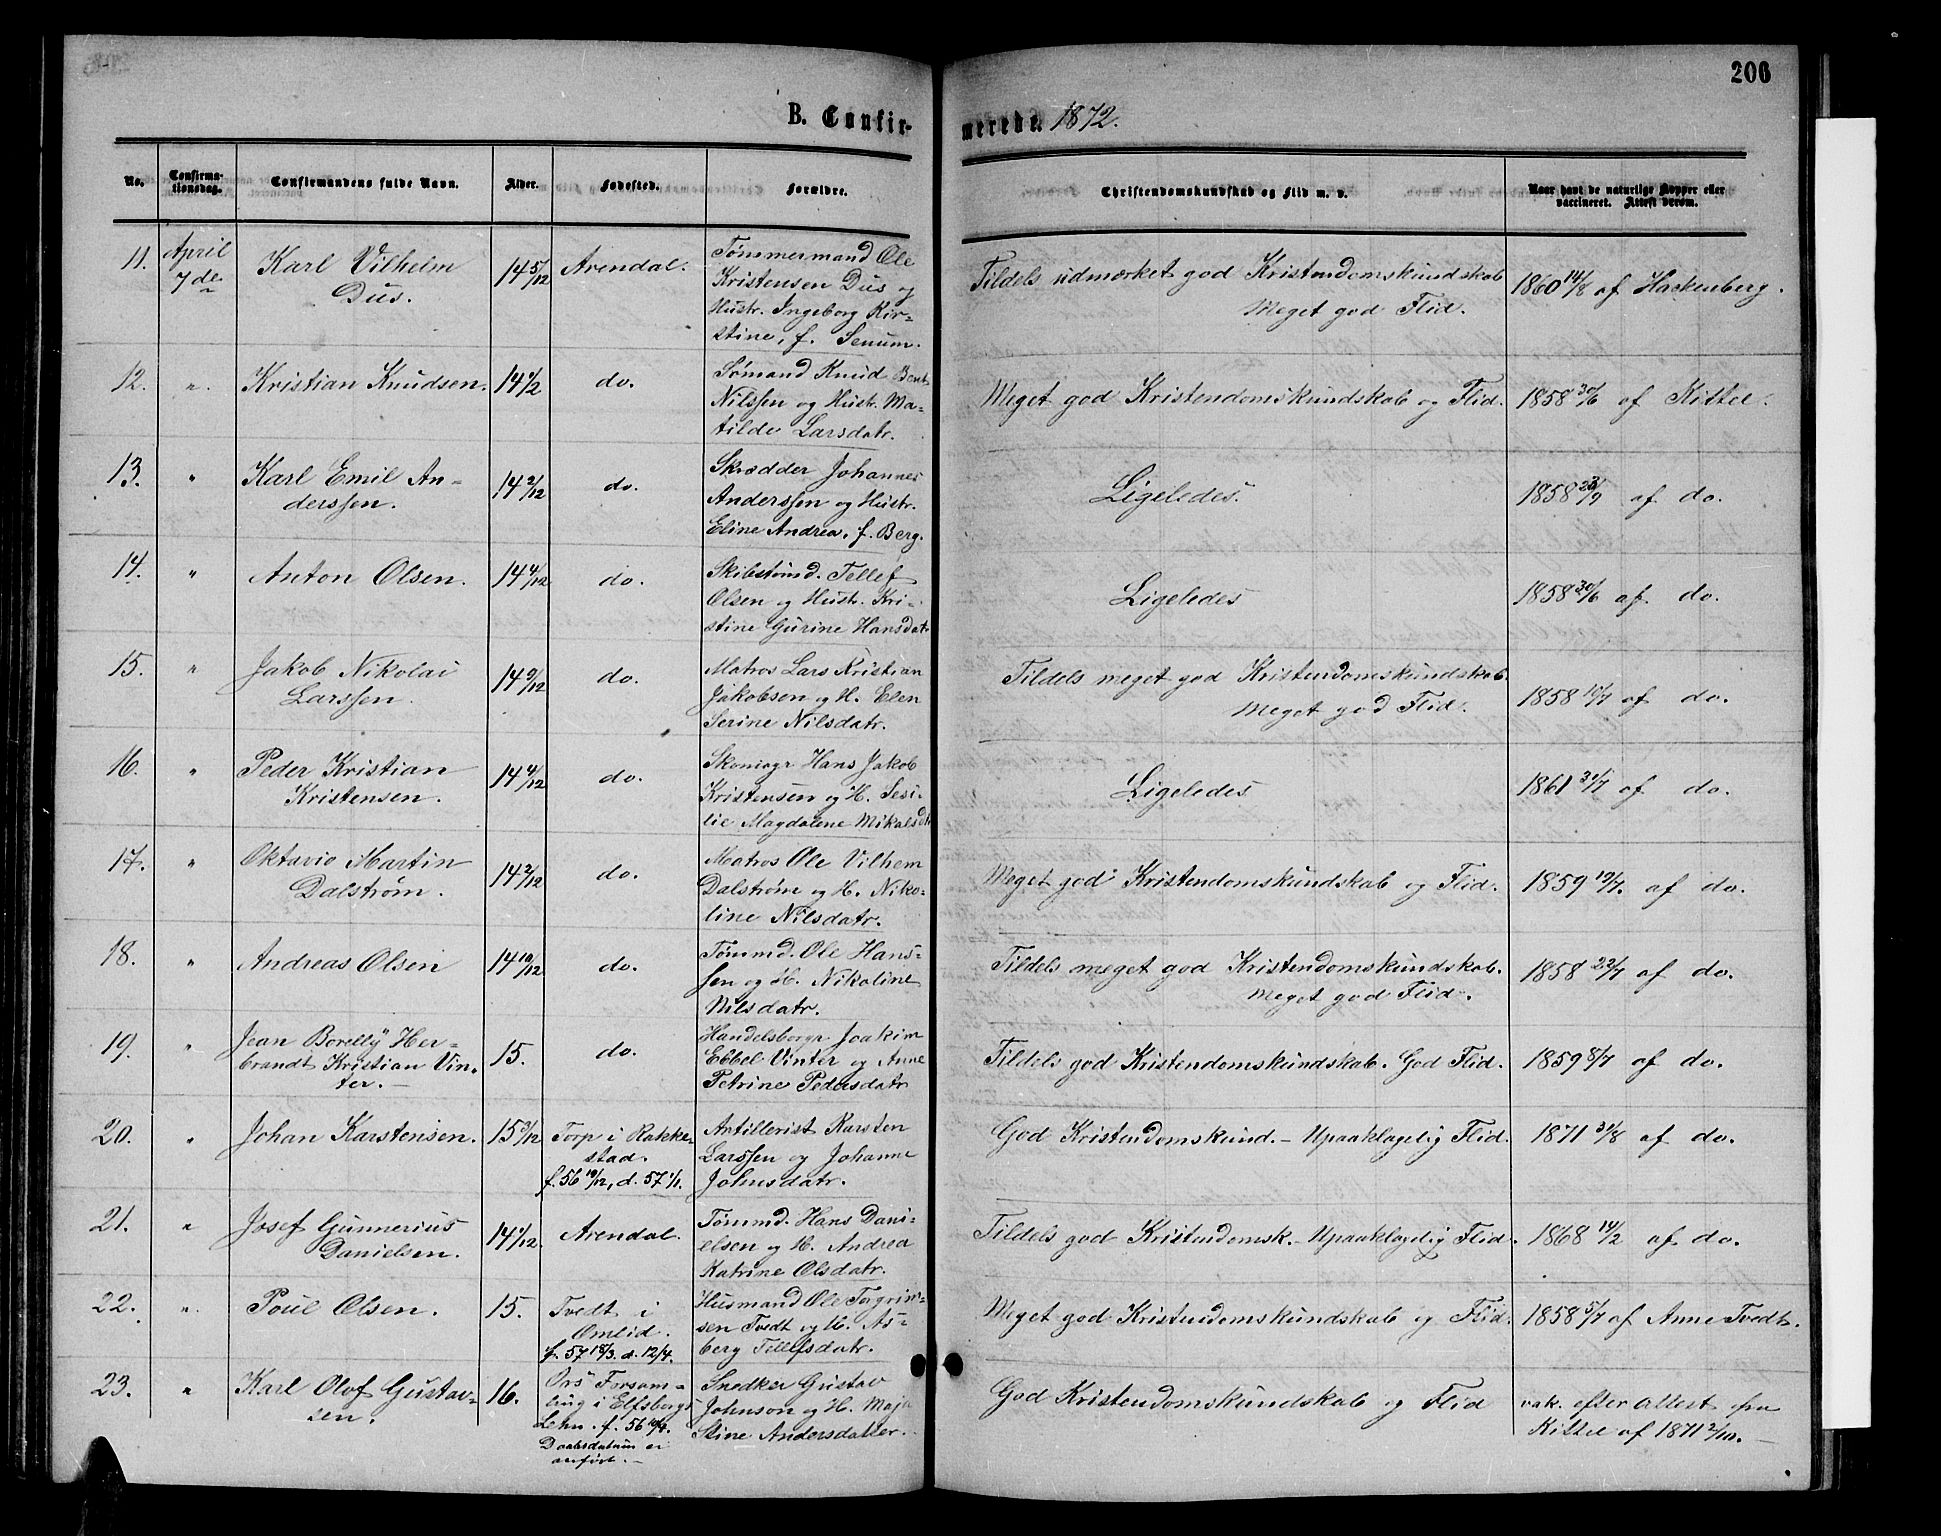 206
B. Confir-
merede. 1872.
No.
Confirma-
tionsdag.
Confirmandens fulde Navn.
Alder.
Fødested.
Forældre.
Christendomskundskab og Flid m. v.
Naar havt de naturlige Kopper eller
vaccineret. Attest derom.
11. April 7de
Karl Vilhelm
Dus.
14 5/12
Arendal.
Tømmermand Ole
Kristensen Dus og
Hustr. Ingeborg Kir-
stine, f. Senum.
Tildels udmærket god Kristendomskundskab
Meget god Flid.
1860 14/8 af Hackenberg.
12. "
Kristian Knudsen.
14 1/2
do.
Sømand Knud Bent
Nilssen og Hustr. Ma-
tilde Larsdatr.
Meget god Kristendomskundskab og Flid.
1858 30/6 af Kittel.
13. "
Karl Emil An-
derssen.
14 2/12
do.
Skrædder Johannes
Anderssen og Hustr.
Eline Andrea, f. Berg.
Ligeledes.
1858 23/9 af do.
14. "
Anton Olsen.
14 4/12
do.
Skibstømd. Tellef
Olsen og Hustr. Kri-
stine Gurine Hansdatr
Ligeledes
1858 30/6 af do.
15. "
Jakob Nikolai
Larssen.
14 9/12
do.
Matros Lars Kristian
Jakobsen og H. Elen
Serine Nilsdatr.
Tildels meget god Kristendomskundskab.
Meget god Flid.
1858 10/7 af do.
16. "
Peder Kristian
Kristensen.
14 4/12
do.
Skomagr Hans Jakob
Kristensen og H. Sesi-
lie Magdalene Mikalsdtr
Ligeledes
1861 31/7 af do.
17. "
Oktavio Martin
Dalstrøm.
14 2/12
do.
Matros Ole Vilhem
Dalstrøm og H. Niko-
line Nilsdatr.
Meget god Kristendomskundskab og Flid.
1859 19/7. af do.
18. "
Andreas Olsen
14 10/12
do.
Tømmd. Ole Hans-
sen og H. Nikoline
Nilsdatr.
Tildels meget god Kristendomskundskab.
Meget god Flid.
1858 22/7 af do.
19. "
Jean Borelly Her-
brandt Kristian Vin-
ter.-
15.
do.
Handelsborgr Joakim
Ebbel Vinter og Anne
Petrine Pedersdatr
Tildels god Kristendomskundskab. God Flid.
1859 8/7 af do.
20. "
Johan Karstensen.
15 3/12
Torp i Rakke-
stad.
f. 56 19/12, d. 57 1/1.
Artillerist Karsten
Larssen og Johanne
Johnsdatr.
God Kristendomskund. - Upaaklagelig Flid.
1871 31/8 af do.
21. "
Josef Gunnerius
Danielsen.
14 1/12.
Arendal.
Tømmd. Hans Dani-
elsen og H. Andrea
Katrine Olsdatr.
Tildels god Kristendomsk. - Upaaklagelig Flid.
1868 14/2 af do.
22. "
Poul Olsen.
15.
Tvedt i
Omlid.
f. 57 18/3. d. 12/4.
Husmand Ole Torgrim-
sen Tvedt og H. As-
berg Tellefsdatr.
Meget god Kristendomskundskab og Flid.
1858 5/7 af Anne Tvedt.
23. "
Karl Olof Gustav-
sen.
16.
Ors Forsam-
ling i Elfsborgs
Lehn. f. 56 10/4.
Daabsdatum ei
anført.-
Snedker Gustav
Johnson og H. Maja
Stine Andersdatter.
God Kristendomskundskab og Flid
vak. efter Attest fra
Kittel af 1871 2/10.-